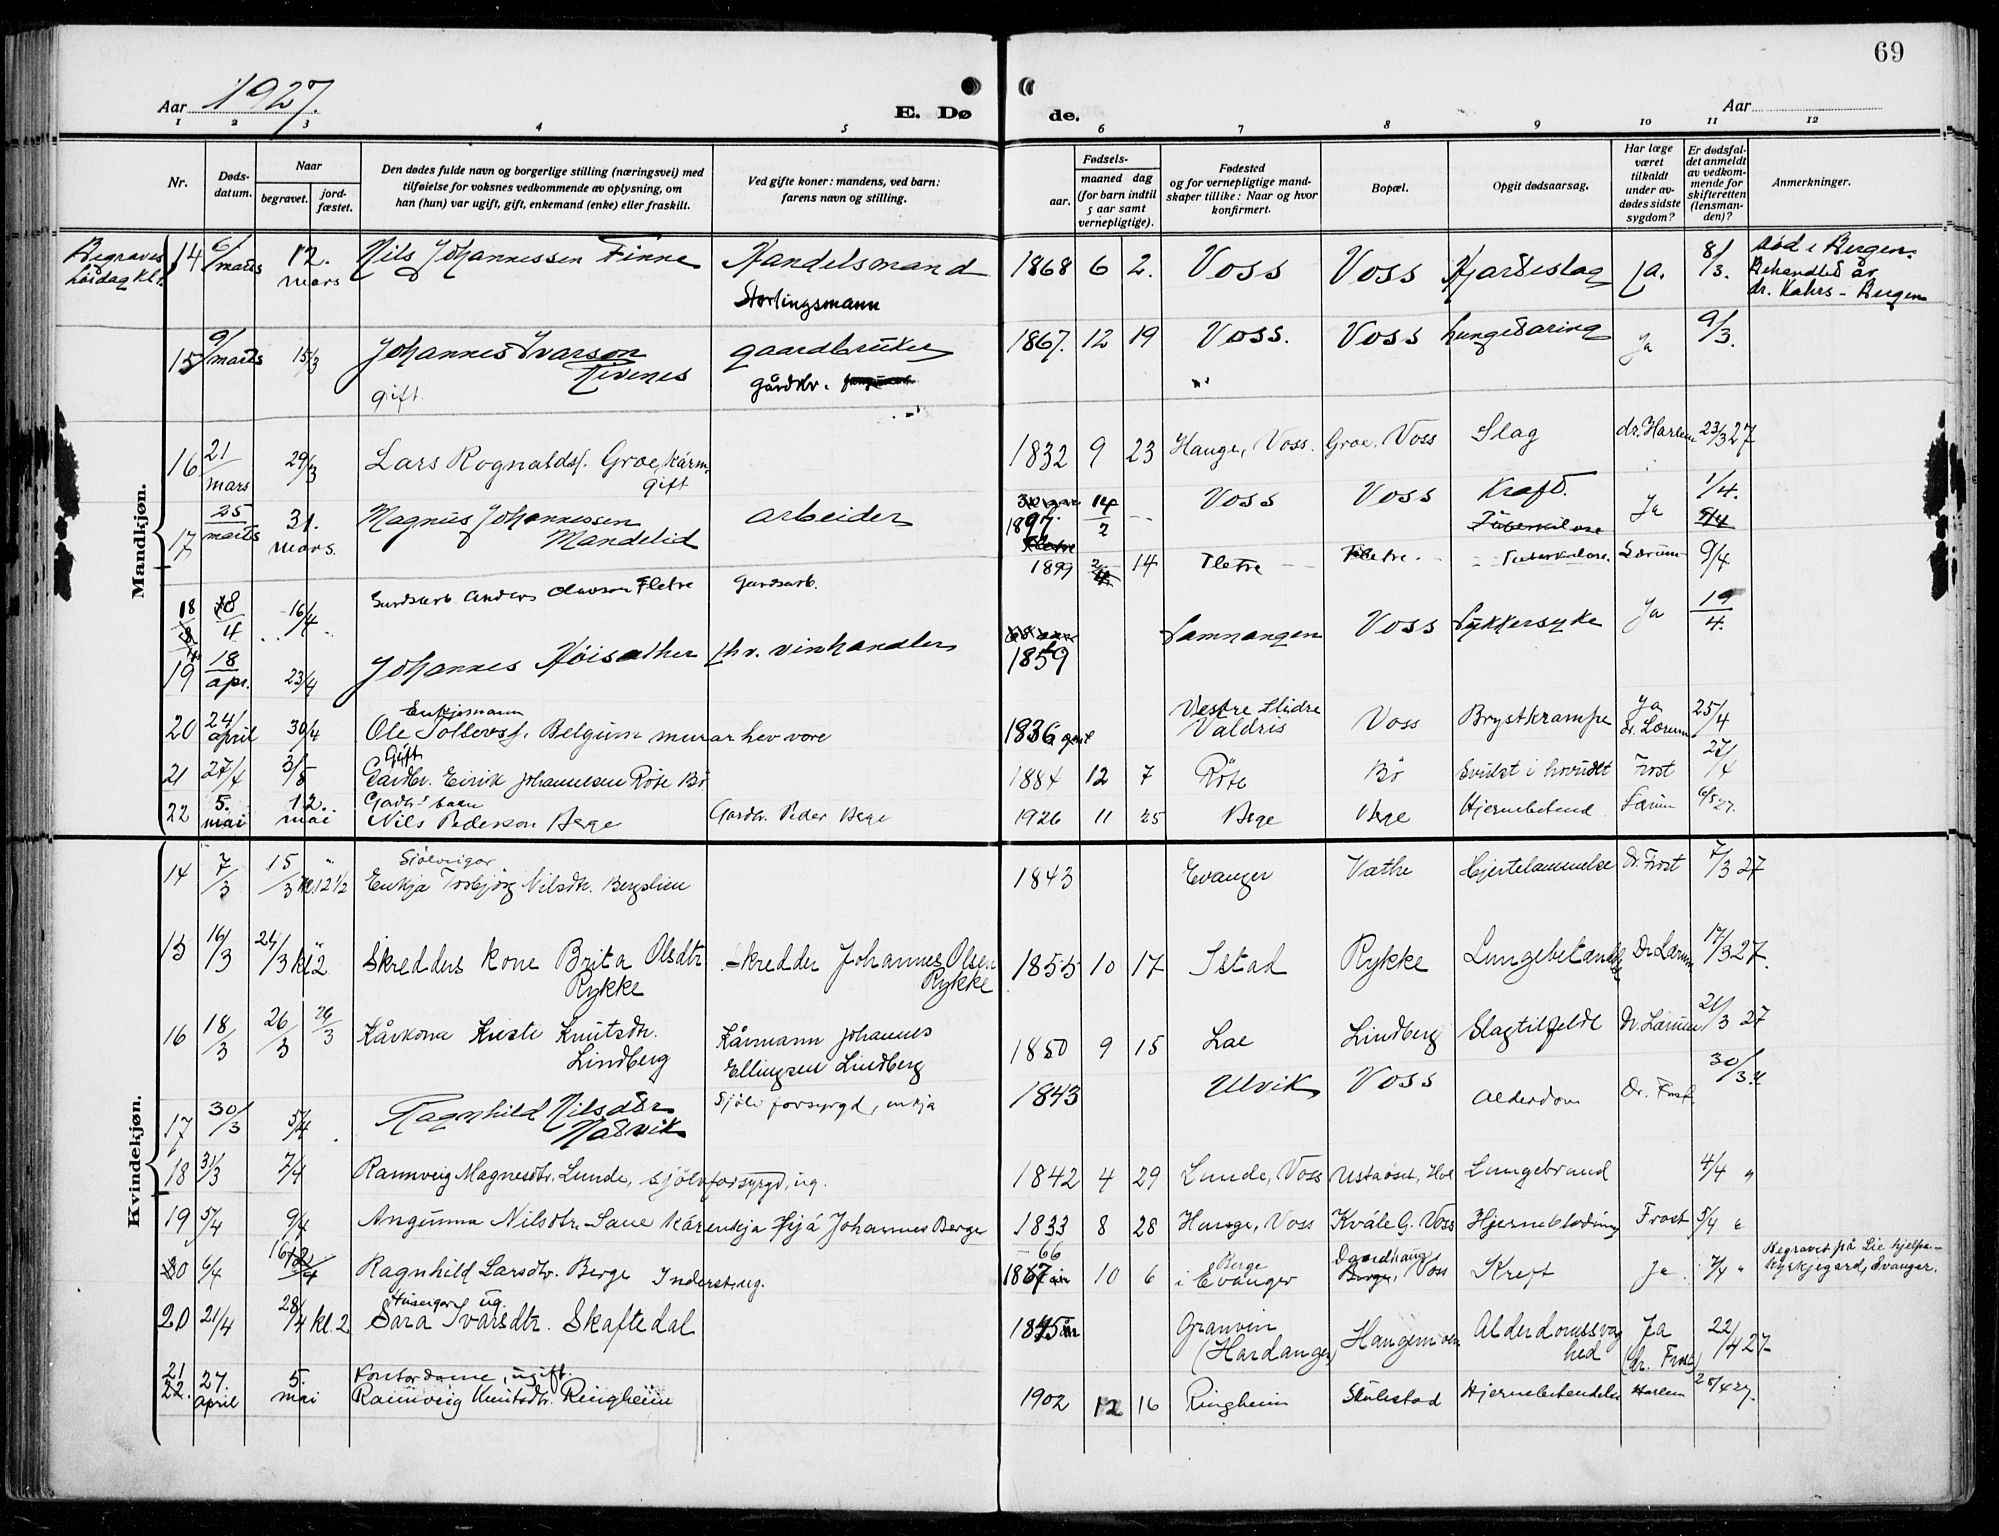 69
Aar 1927.
E. Dø
de.
Aar
1 2 3 4 5 6 7 8 9 10 11 12
Nr.
Døds-
datum.
Naar
begravet.
jord-
fæstet.
Den dødes fulde navn og borgerlige stilling (næringsvei) med
tilføielse for voksnes vedkommende av oplysning, om
han (hun) var ugift, gift, enkemand (enke) eller fraskilt.
Ved gifte koner: mandens, ved barn:
farens navn og stilling.
Fødsels-
aar.
maaned dag
(for barn indtil
5 aar samt
vernepligtige).
Fødested
og for vernepligtige mand-
skaper tillike: Naar og hvor
konfirmert.
Bopæl.
Opgit dødsaarsag.
Har læge
været
tilkaldt
under av-
dødes sidste
sygdom?
Er dødsfal-
det anmeldt
av vedkom-
mende for
skifteretten
(lensman-
den)?
Anmerkninger.
Mandkjøn.
Begraves
14 6/ marts 12. mars Nils Johannessen Finne Handelsmand Stortingsmann 1868 6 2. Voss Voss Hjarteslag ja. 8/3. død i Bergen.
Behandlet av
dr. Kahrs - Bergen
15 9/ marts 15/3 Johannes Ivarson Rivenes gaardbruker 1867. 12 19 Voss. Voss Ja 9/3.
gift. gårdbr.
16 21/mars 29/3 Lars Rognaldsf. Groe, kårm. gift 1832 9 23 Hauge, Voss. Groe, Voss Slag dr. Harlem 23/3 27
17 25/marts 31. mars. Magnus Johannessen Mandelid arbeider 1897. 14/2 Voss Voss Kræft. Tuberkulose Ja 1/4.
18 8/4 16/4 Anders Olavson Fletre Gardsarb. 1899 14 Fletre Fletre Tuberkulose. Lærum 9/4
19 18/apr. 23/4 Johannes Høisæther fhv. vinhandler 1859 Samnangen Voss Sykkersyke Ja 19/4.
20 24/april 30/4 Enkjemann Ole Tollevsf. Belgum murar hev vore 1836 Vestre Slidre Valdris Voss Brystkrampe Ja Dr. Lærum 25/4
21 27/4 3/5 Gift Gardbr. Eirik Johannesen Røte Bø 1884 12 7 Røte Bø Svulst i hovudet Frost 27/4
22 5. mai 12. mai Nils Pederson Berge Gardbr. Peder Berge 1926 11 25 Berge Berge Hjernebetend Lærum 6/5 27.
Kvindekjøn.
14 7/3 15/3 kl. 12 1/2 Sjølveigar Enkja Torbjørg Nilsdtr. Bergslien 1843 Evanger Væthe Hjertelammelse Dr. Frost 7/3 27
15 16/3 24/3 kl. 2 Skredders kone Brita Olsdtr. Rykke Skredder Johannes Olsen Rykke 1855 10 17 Istad Rykke Lungebetændelse Dr Lærum 17/3 27.
16 18/3 26/3 26/3 Kårkona Kirsti Knutsdtr. Lindberg Kårmann Johannes Ellingsen Lindberg 1850 9 15 Lae Lindberg Slagtilfelde Dr. Lærum 21/3 27
17 30/3 5/4 Ragnhild Nilsdtr Nesvik Sjølvforsyrgd, enkja 1843 Ulvik Voss Alderdom Dr. Frost 30/3
18 31/3 7/4 Rannveig Magnesdtr. Lunde, sjølvforsyrgd, ug. 1842 4 29 Lunde, Voss Ustaoset, Hol Lungebrand 4/4 "
19 5/4 9/4 Angunna Nilsdtr. Saue kårenkja hjå Johannes Berge 1833 8 28 Hauge, Voss Kvåle G. Voss Hjerneblødning Frost 5/4 "
6/4 Ragnhild Larsdtr. Berge Inderst, ug. 1866 10 6 Berge i Evanger Voss Kreft Ja 7/4 " Begravet på Lie hjelpe-
kyrkjegard, Evanger.
20 21/4 28/4 kl. 2 Huseigar ug. Sara Ivarsdtr. Skaftedal 1845 Granvin (Hardanger) Haugamoen Alderdomssvaghed Ja (dr. Frost) 22/4 27-
21 22. 27. april 5. mai Kontordame, ugift. Rannveig Knutsdtr. Ringheim 1902 12 16 Ringheim Skulestad Hjernebetendelse Harlem 28/4 27.